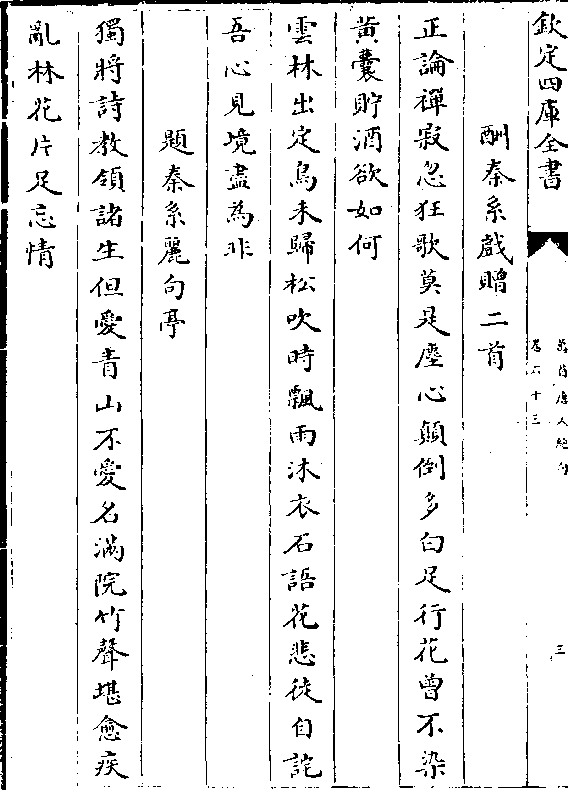 欽定四庫全書
萬首唐人絶句
卷六十三
三
酬秦系戲贈二首
正論禪寂忽狂歌莫是塵心顛倒多白足行花曾不染
黄囊貯酒欲如何
雲林出定鳥未歸松吹時飄雨沐衣石語花悲徒自詫
吾心見境盡為非
題秦系麗句亭
獨將詩教領諸生但愛青山不愛名滿院竹聲堪愈疾
亂林花片足忘情